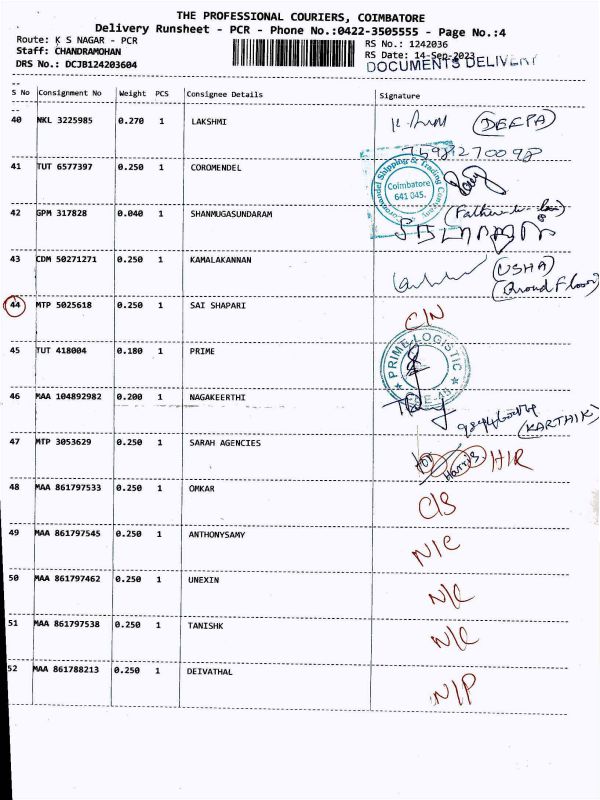 THE PROFESSIONAL COURIERS, COIMBATORE
Delivery Runsheet - PCR - Phone No.:0422-3505555 - Page No.:4
Route: K S NAGAR - PCR
RS No.: 1242036
Staff: CHANDRAMOHAN
RS Date: 14-Sep-2023
DRS No.: DCJB124203604
DOCUMENTS DELIVERY
S No Consignment No Weight PCS Consignee Details Signature
40 NKL 3225985 0.270 1 LAKSHMI (DEEPA)
41 TUT 6577397 0.250 1 COROMENDEL
Coromandel Shipping & Trading Company
Coimbatore
641 045.
42 GPM 317828 0.040 1 SHANMUGASUNDARAM
43 CDM 50271271 0.250 1 KAMALAKANNAN (USHA)
44 MTP 5025618 0.250 1 SAI SHAPARI C/N
45 TUT 418004 0.180 1 PRIME
PRIME LOGISTIC
46 MAA 104892982 0.200 1 NAGAKEERTHI
(KARTHIK)
47 MTP 3053629 0.250 1 SARAH AGENCIES Harris. H/R
48 MAA 861797533 0.250 1 OMKAR C/S
49 MAA 861797545 0.250 1 ANTHONYSAMY N/C
50 MAA 861797462 0.250 1 UNEXIN N/C
51 MAA 861797538 0.250 1 TANISHK N/C
52 MAA 861788213 0.250 1 DEIVATHAL N/P